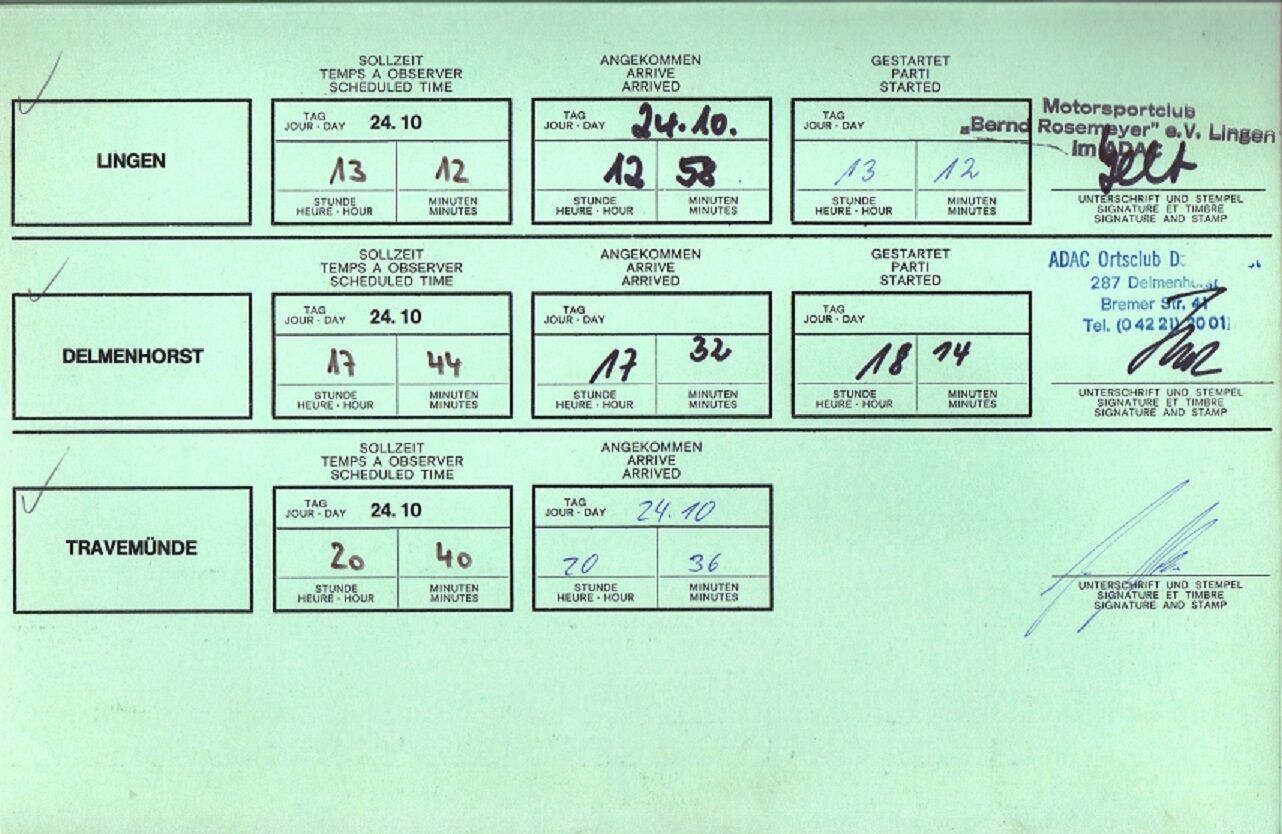 SOLLZEIT
TEMPS A OBSERVER
SCHEDULED TIME
ANGEKOMMEN
ARRIVE
ARRIVED
GESTARTET
PARTI
STARTED
LINGEN
TAG
JOUR - DAY 24.10
13 12
STUNDE
HEURE - HOUR
MINUTEN
MINUTES
TAG
JOUR - DAY 24.10.
12 58
STUNDE
HEURE - HOUR
MINUTEN
MINUTES
TAG
JOUR - DAY
13 12
STUNDE
HEURE - HOUR
MINUTEN
MINUTES
Motorsportclub
„Bernd Rosemeyer" e.V. Lingen
im ADAC
UNTERSCHRIFT UND STEMPEL
SIGNATURE ET TIMBRE
SIGNATURE AND STAMP
SOLLZEIT
TEMPS A OBSERVER
SCHEDULED TIME
ANGEKOMMEN
ARRIVE
ARRIVED
GESTARTET
PARTI
STARTED
DELMENHORST
TAG
JOUR - DAY 24.10
17 44
STUNDE
HEURE - HOUR
MINUTEN
MINUTES
TAG
JOUR - DAY
17 32
STUNDE
HEURE - HOUR
MINUTEN
MINUTES
TAG
JOUR - DAY
18 14
STUNDE
HEURE - HOUR
MINUTEN
MINUTES
ADAC Ortsclub
287 Delmenhorst
Bremer Str. 41
Tel. (0 42 21)
UNTERSCHRIFT UND STEMPEL
SIGNATURE ET TIMBRE
SIGNATURE AND STAMP
SOLLZEIT
TEMPS A OBSERVER
SCHEDULED TIME
ANGEKOMMEN
ARRIVE
ARRIVED
TRAVEMÜNDE
TAG
JOUR - DAY 24.10
20 40
STUNDE
HEURE - HOUR
MINUTEN
MINUTES
TAG
JOUR - DAY 24.10
20 36
STUNDE
HEURE - HOUR
MINUTEN
MINUTES
UNTERSCHRIFT UND STEMPEL
SIGNATURE ET TIMBRE
SIGNATURE AND STAMP